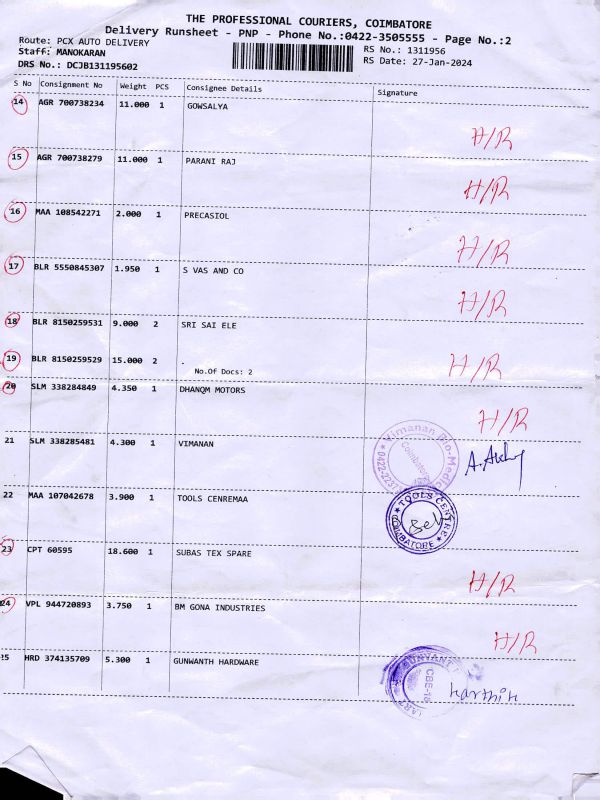 THE PROFESSIONAL COURIERS, COIMBATORE
Delivery Runsheet - PNP - Phone No.:0422-3505555 - Page No.:2
Route: PCX AUTO DELIVERY
RS No.: 1311956
Staff: MANOKARAN
RS Date: 27-Jan-2024
DRS No.: DCJB131195602
S No Consignment No Weight PCS Consignee Details Signature
14 AGR 700738234 11.000 1 GOWSALYA
H/R
15 AGR 700738279 11.000 1 PARANI RAJ
H/R
16 MAA 108542271 2.000 1 PRECASIOL
H/R
17 BLR 5550845307 1.950 1 S VAS AND CO
H/R
18 BLR 8150259531 9.000 2 SRI SAI ELE
19 BLR 8150259529 15.000 2 .
H/R
No.Of Docs: 2
20 SLM 338284849 4.350 1 DHANQM MOTORS
H/R
21 SLM 338285481 4.300 1 VIMANAN
Vimanan Bio-Medic
Coimbatore
22 MAA 107042678 3.900 1 TOOLS CENREMAA
TOOLS CENTRE
COIMBATORE
23 CPT 60595 18.600 1 SUBAS TEX SPARE
H/R
24 VPL 944720893 3.750 1 BM GONA INDUSTRIES
H/R
25 HRD 374135709 5.300 1 GUNWANTH HARDWARE
CBE-18
karthik